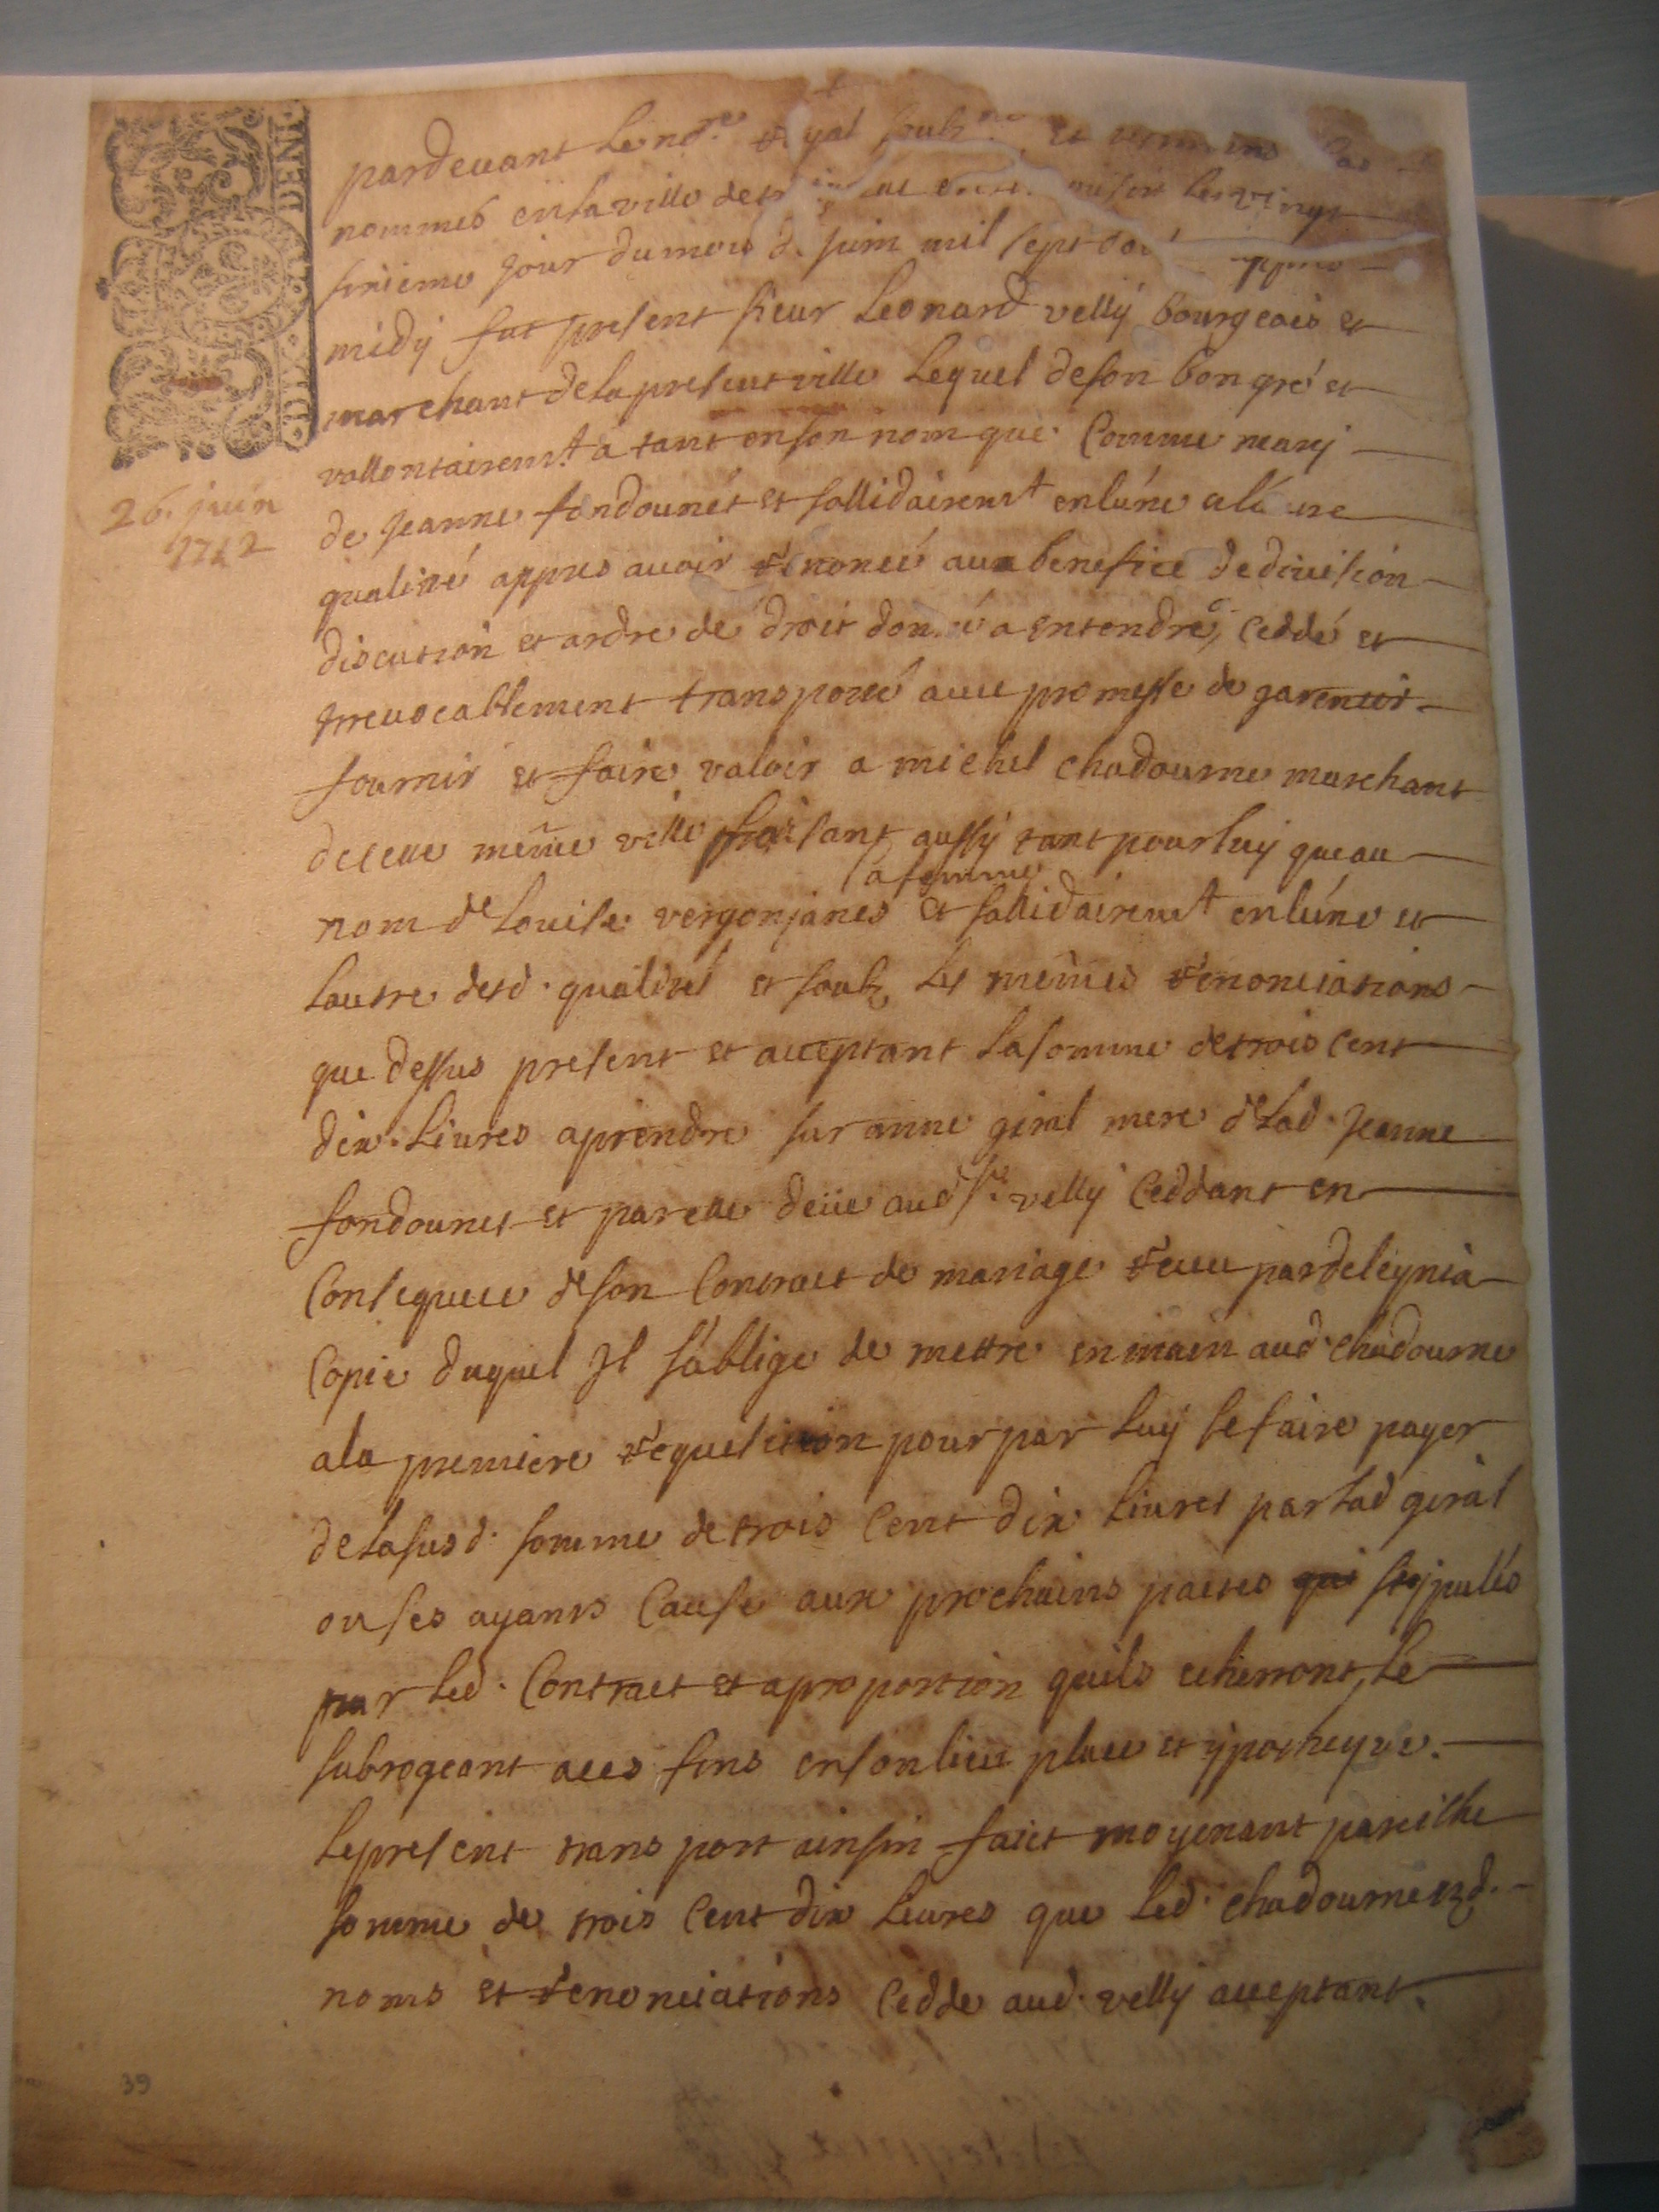 DENI
pardevant le no.re royal soubz.ne et temoins bas
nommes en la ville de les vingt
sixieme jour du mois de juin mil sept apres
midy fut present sieur Leonard velly bourgeois et
marchant de la present ville lequel de son bon gré et
vollontairem.t a tant en son nom que comme mary
26. juin
1712
de jeanne fondounet et sollidairem.t en lúne et lá
qualitté appres avoir renoncé aux benefice de division
discution et ordre de droit donné a entendre, ceddé et
irrevocablement transporté avec promesse de garentir
fournir et faire valoir a michel chadourne marchant
de cette même ville faisant aussy tant pour luy que au
sa femme
nom de Louise vergonjanes et sollidairem.t en lúne et
lautre desd. qualités et soubz les memes renonciations
que dessus present et acceptant la somme de trois cent
dix livres a prendre sur anne giral mere de lad. jeanne
fondounet et par elle deüe aud. s.r velly ceddant en
consequence de son contract de mariage receu par deleynia
copie duquel Il s'oblige de mettre en main aud. chadourne
a la premiere requesition pour par luy se faire payer
de la susd. somme de trois cent dix livres par lad giral
ou ses ayants cause aux prochains pactes qui stypulés
par led. contract et a proportion quils echerront, le
subrogeant a ces fins en son lieu place et ypotheque.
le present transport ainsin faict moyenant pareilhe
somme de trois cent dix livres que led. chadourne esd.
noms et renonciations cedde aud. velly acceptant
39